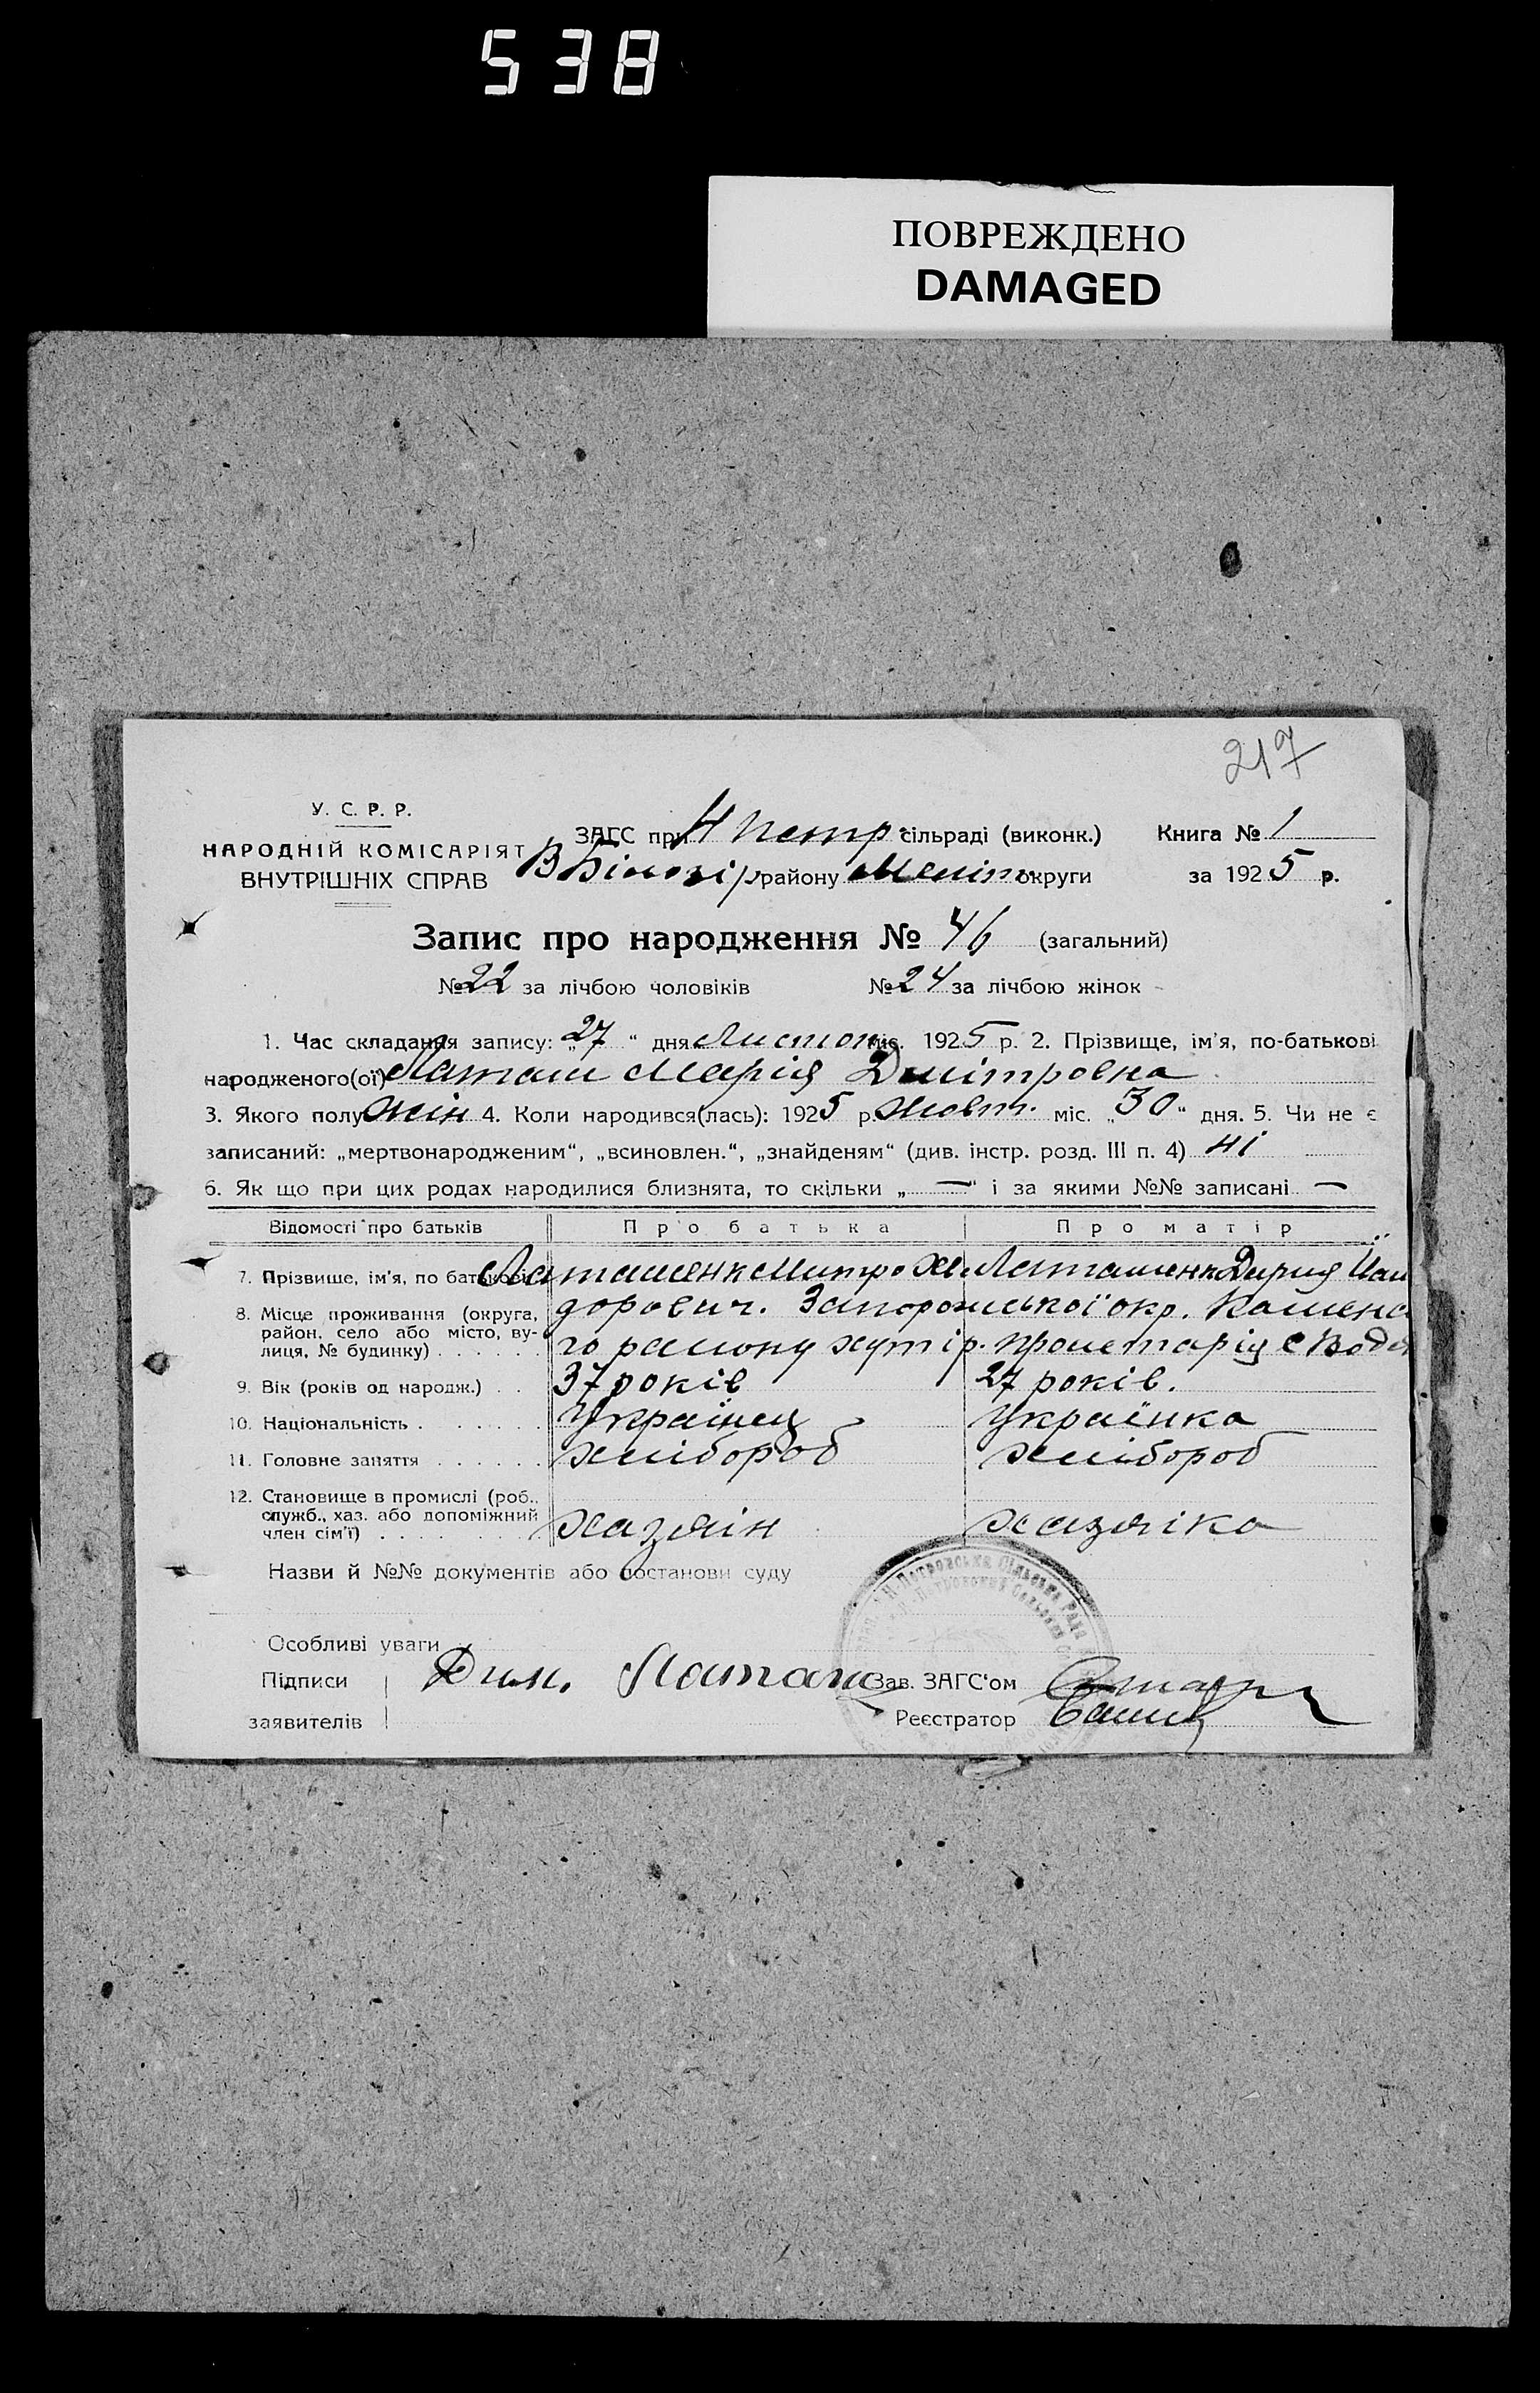 538
ПОВРЕЖДЕНО
DAMAGED
217
У. С. Р. Р.
НАРОДНІЙ КОМІСАРІЯТ
ВНУТРІШНІХ СПРАВ
ЗАГС при Н Петр. сільраді (виконк.) Книга № 1
В Білозір району Меліт. округи за 1925 р.
Запис про народження № 46 (загальний)
№ 22 за лічбою чоловіків № 24 за лічбою жінок
1. Час складання запису: „27“ дня Листоп міс. 1925 р. 2. Прізвище, ім'я, по-батькові
народженого(ої) Латаш Марія Дмітровна
3. Якого полу жін 4. Коли народився(лась): 1925 р. жовт. міс. „30“ дня. 5. Чи не є
записаний: „мертвонародженим“, „всиновлен.“, „знайденям“ (див. інстр. розд. III п. 4) ні
6. Як що при цих родах народилися близнята, то скільки „—“ і за якими №№ записані —
Відомості про батьків Про батька Про матір
7. Прізвище, ім'я, по батькові Латашенк Митро Латашенк Дария
8. Місце проживання (округа, район, село або місто, вулиця, № будинку) дорович. Запорожської окр. Каменс
го району хутір. пролетарія с Водя
9. Вік (років од народж.) 37 років 27 років.
10. Національність Українец Українка
11. Головне заняття хлібороб хлібороб
12. Становище в промислі (роб., служб., хаз. або допоміжний член сім'ї) хазяїн хазяїка
Назви й №№ документів або постанови суду
Особливі уваги
Підписи Дим. Латаш Зав. ЗАГС'ом
заявителів Реєстратор